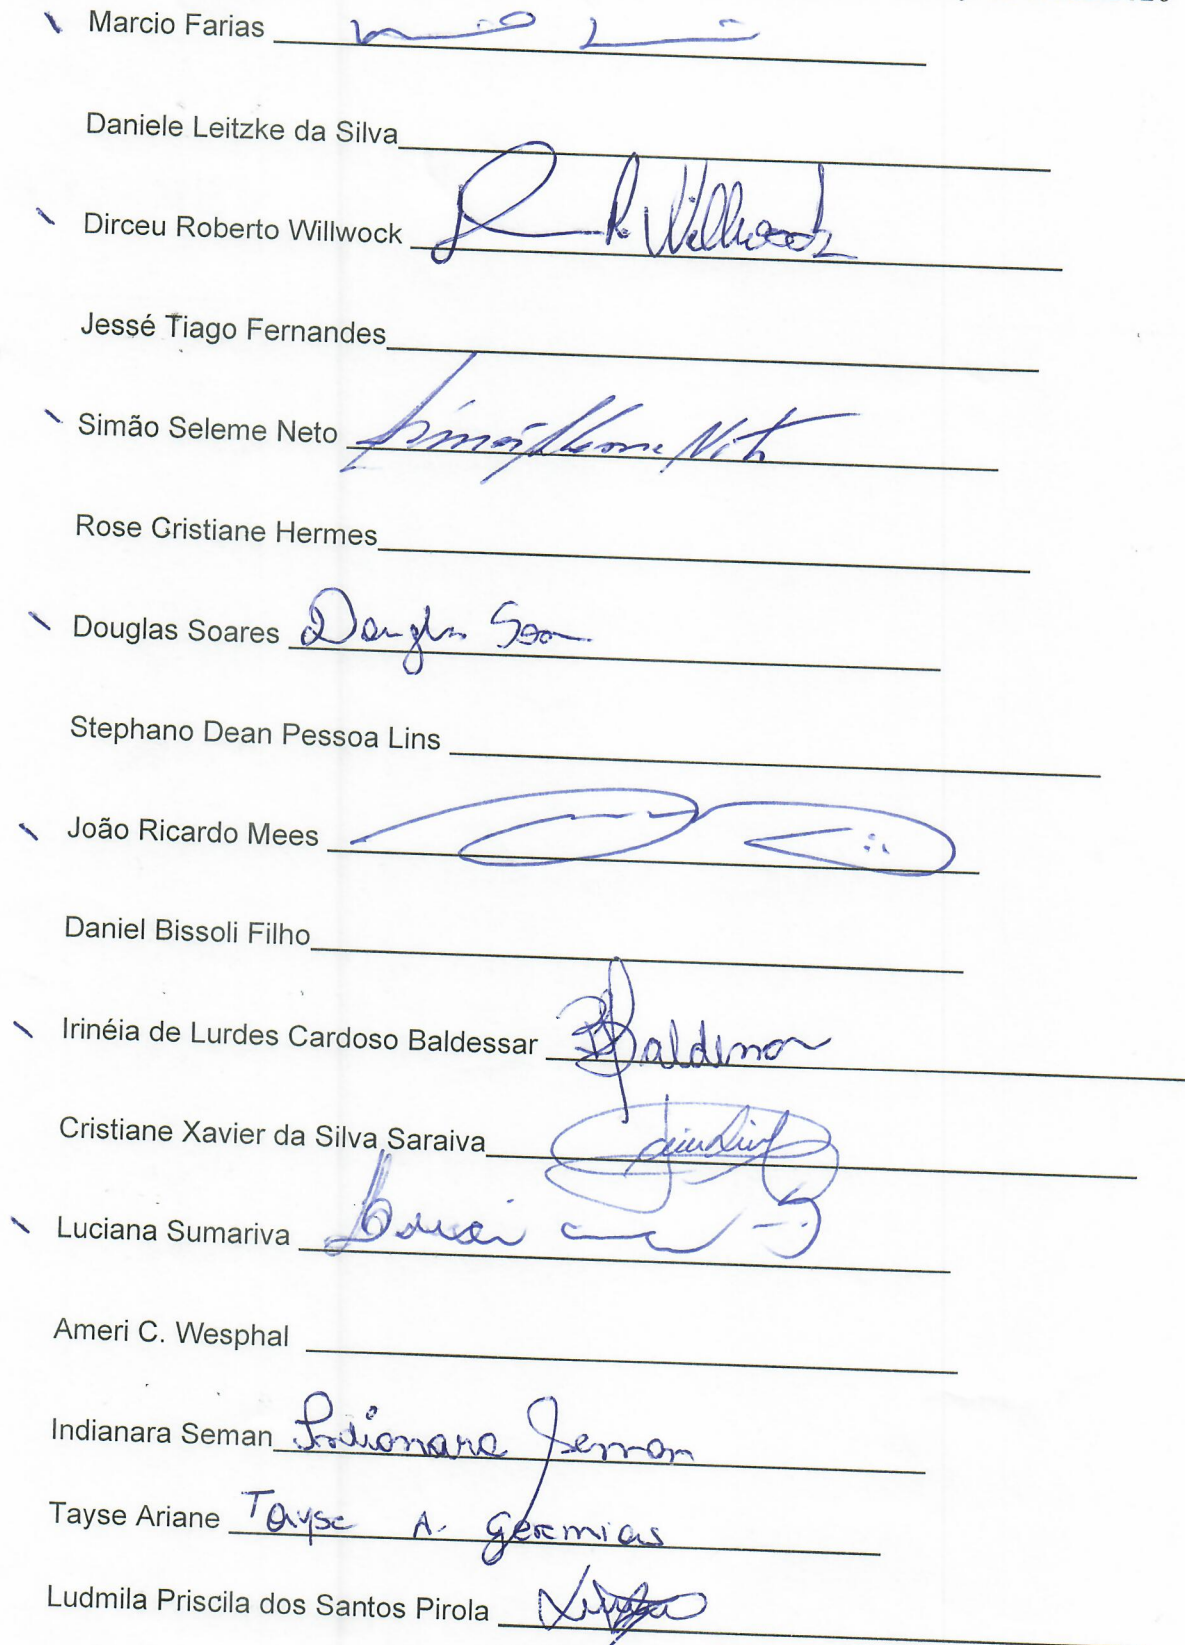 Marcio Farias
Daniele Leitzke da Silva
Dirceu Roberto Willwock R. Willwock
Jessé Tiago Fernandes
Simão Seleme Neto Simão Seleme Neto
Rose Cristiane Hermes
Douglas Soares Douglas
Stephano Dean Pessoa Lins
João Ricardo Mees
Daniel Bissoli Filho
Irinéia de Lurdes Cardoso Baldessar Baldessar
Cristiane Xavier da Silva Saraiva
Luciana Sumariva
Ameri C. Wesphal
Indianara Seman Indianara Seman
Tayse Ariane Tayse A. Geremias
Ludmila Priscila dos Santos Pirola